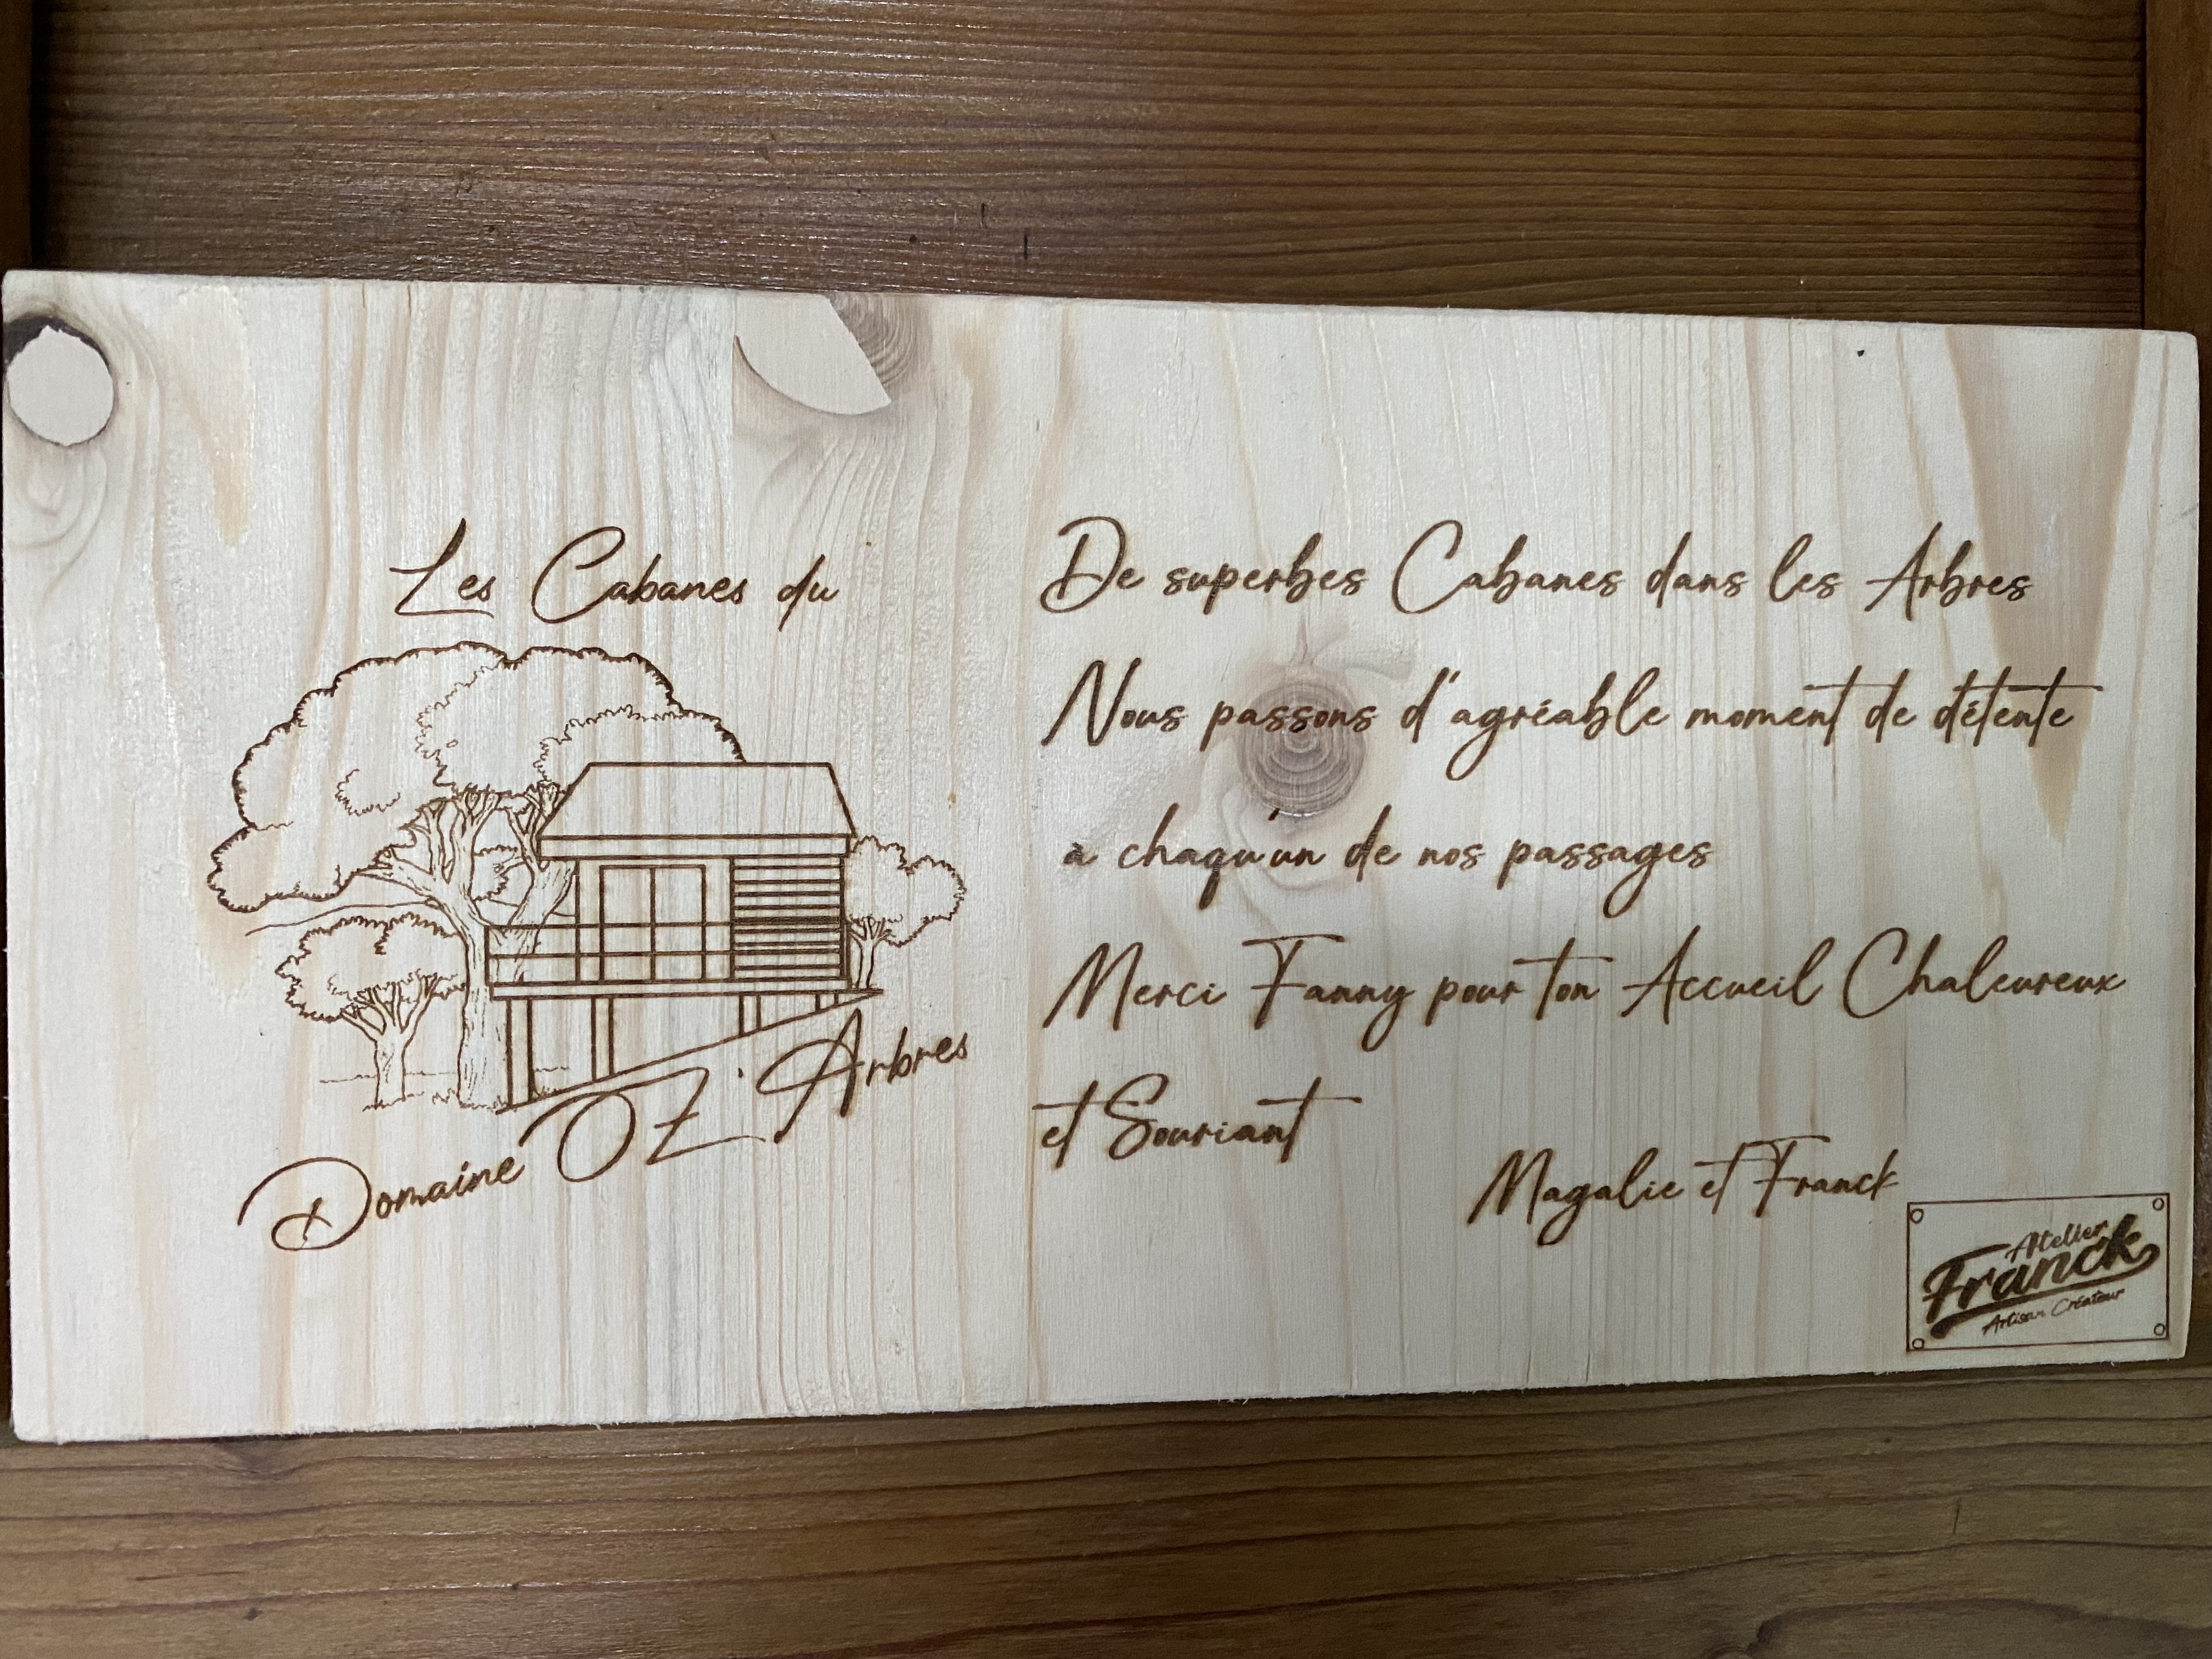 Les Cabanes du
Domaine OZ'Arbres
De superbes Cabanes dans les Arbres
Nous passons d'agréable moment de détente
à chaqu'un de nos passages
Merci Fanny pour ton Accueil Chaleureux
et Souriant
Magalie et Franck
Atelier
Franck
Artisan Créateur